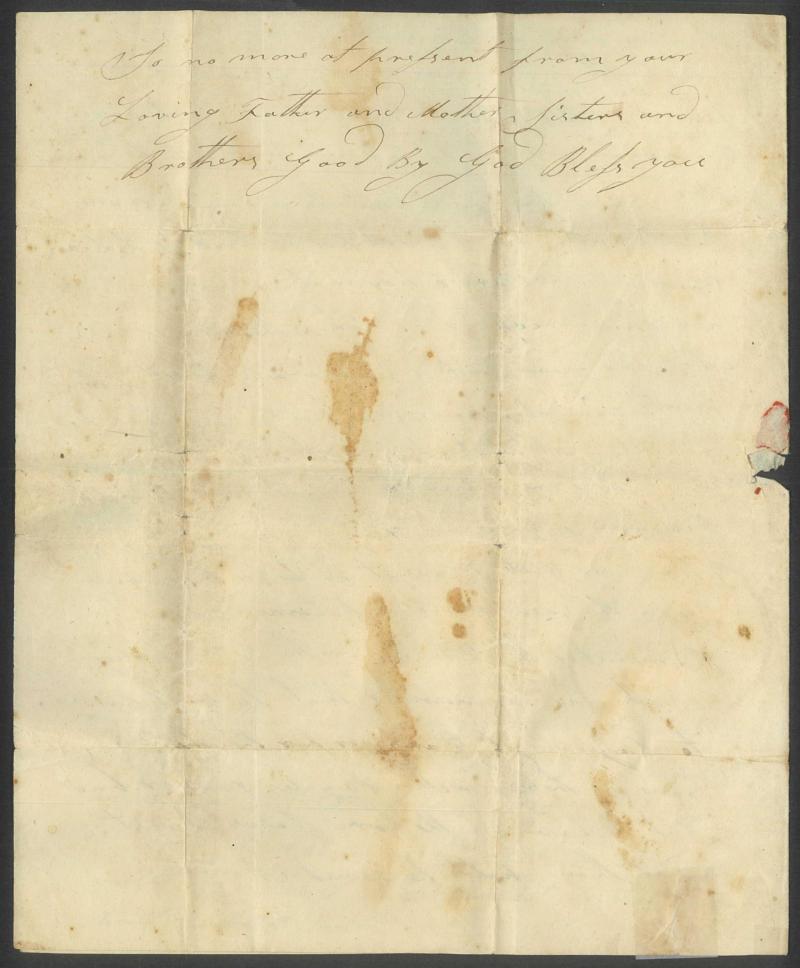 So no more at pressent from your
Loving Father and Mother, Sisters and
Brothers Good By God Bless you